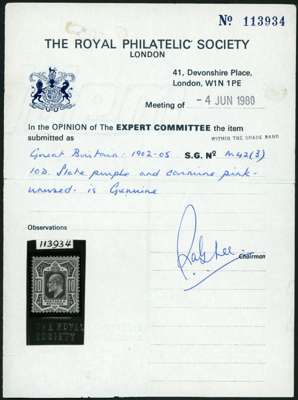 No 113934
THE ROYAL PHILATELIC SOCIETY
LONDON
41, Devonshire Place,
London, W1N 1PE
Meeting of - 4 JUN 1980
In the OPINION of The EXPERT COMMITTEE the item
submitted as WITHIN THE GRADE BAND
Great Britain. 1902-05 S.G. No M42(3)
10D. Slate purple and carmine pink-
unused- is Genuine
Observations
113934
Chairman
10 10
THE ROYAL
SOCIETY